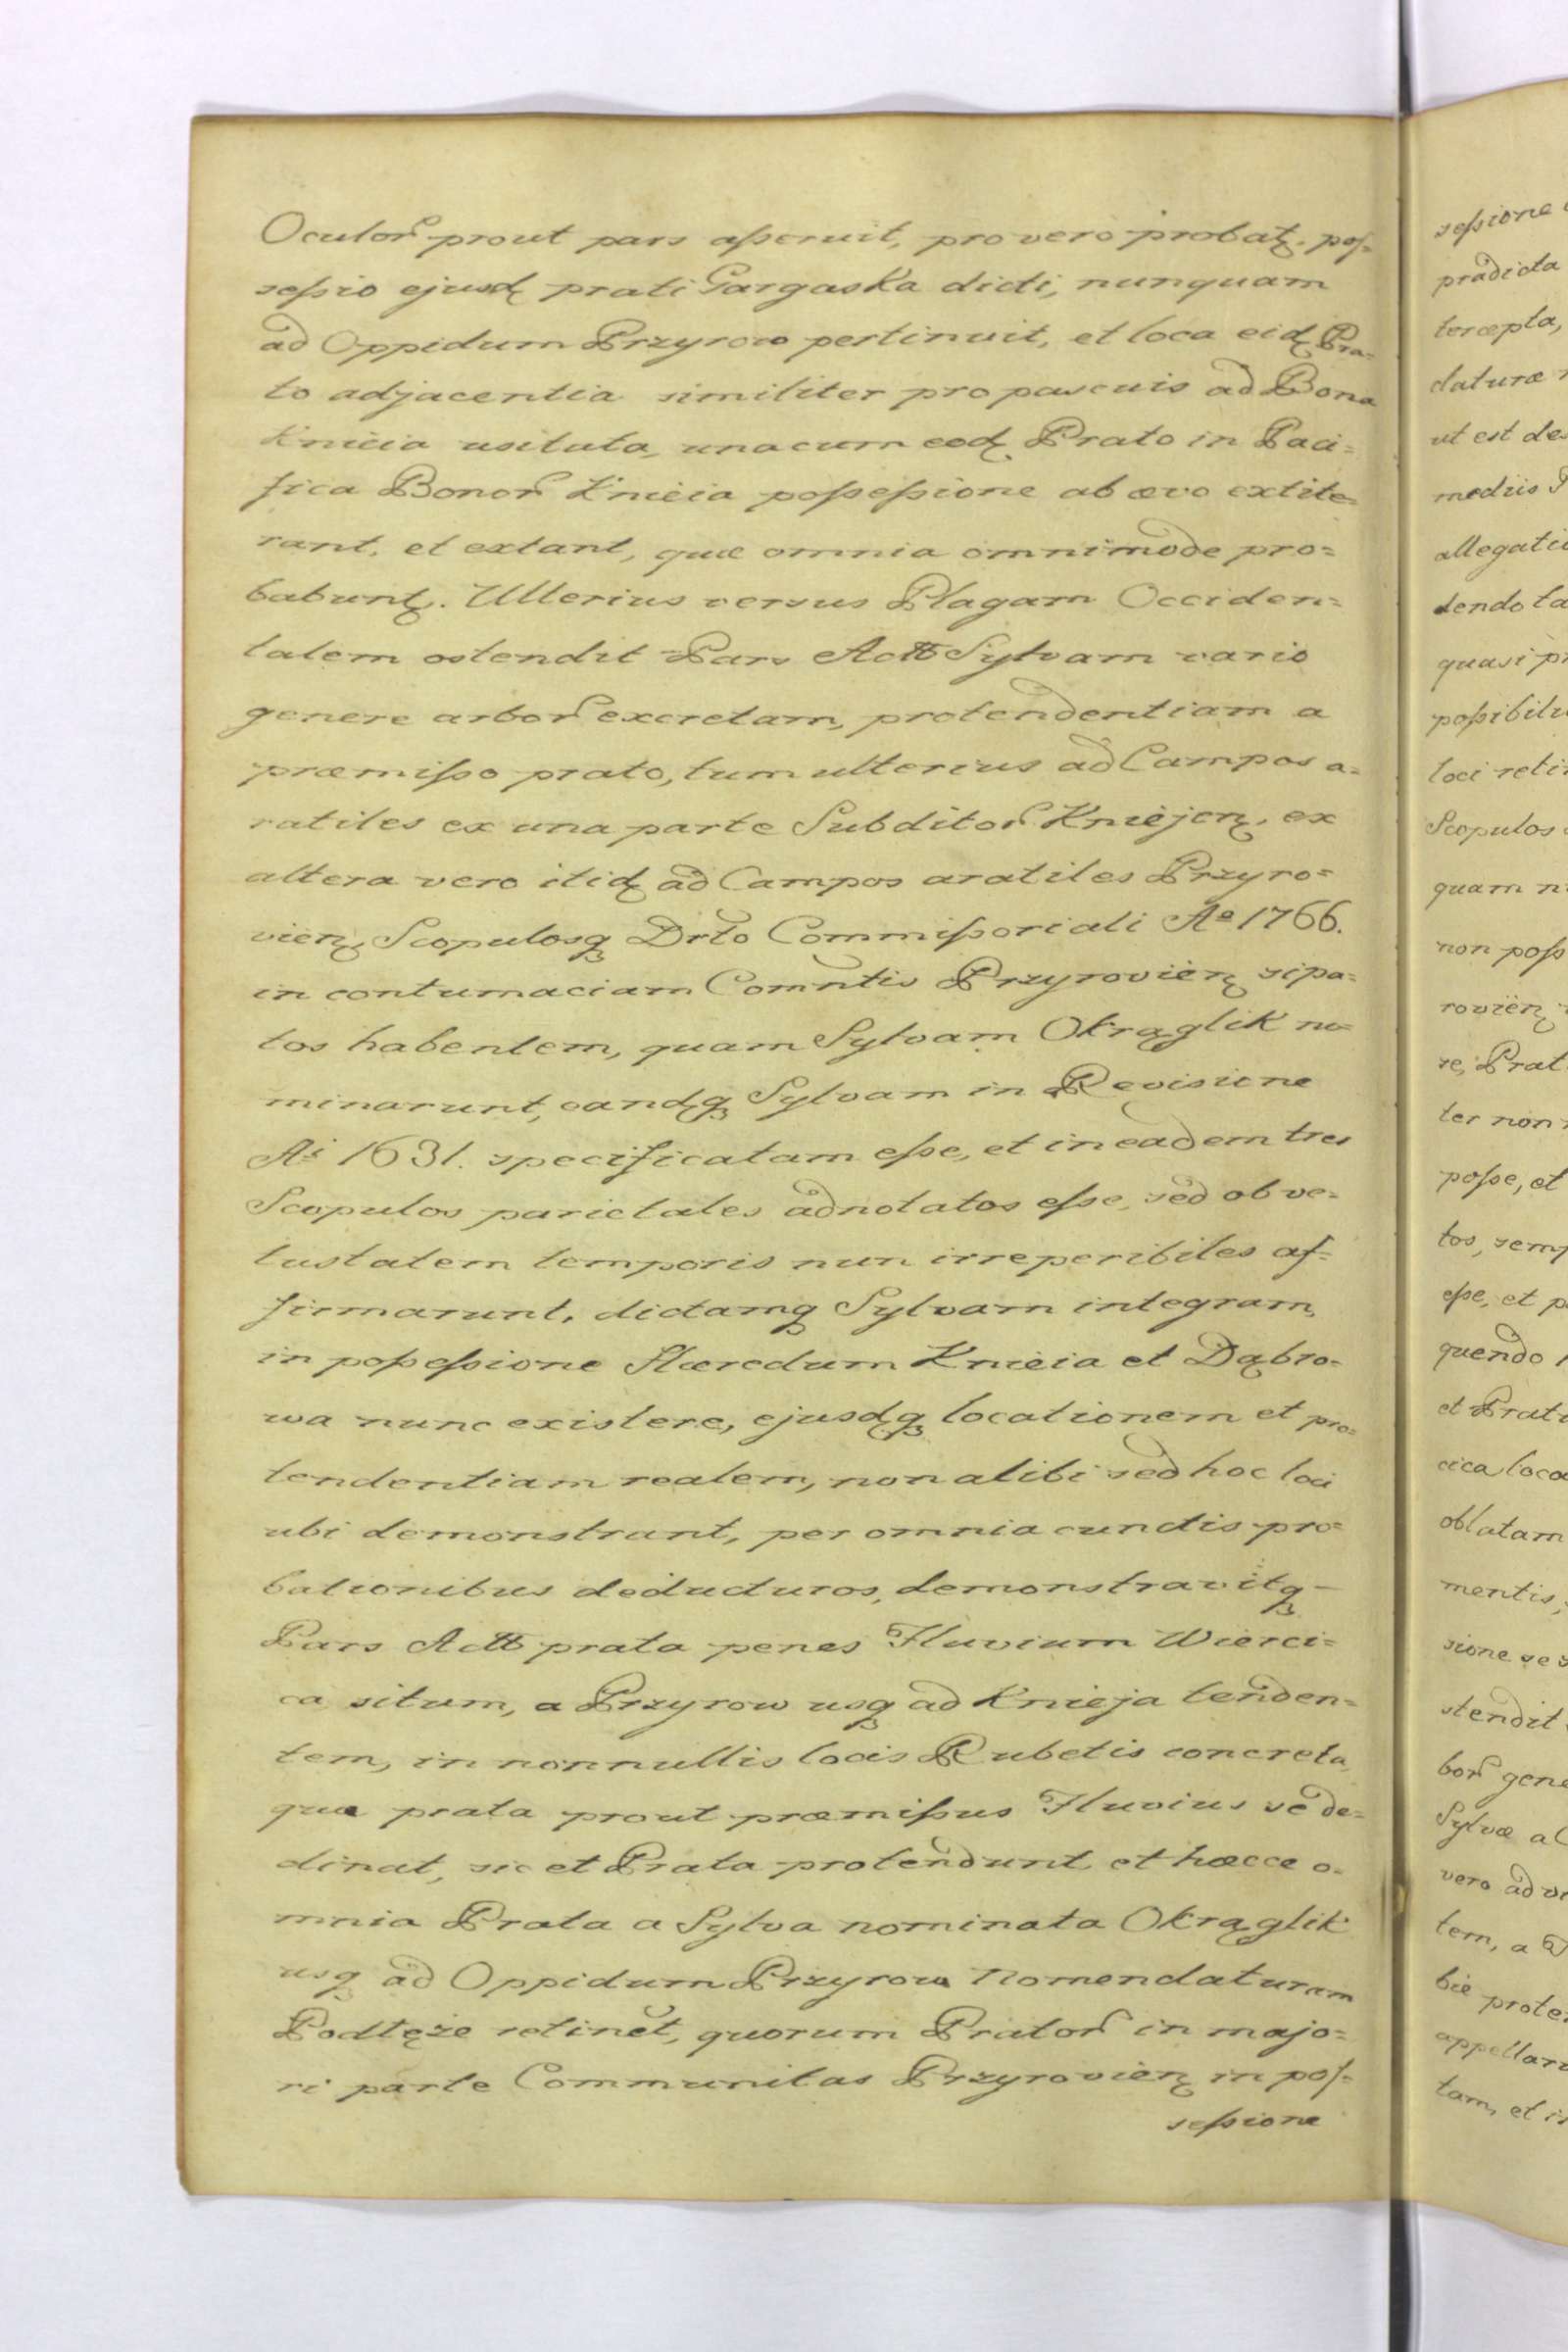 Oculor prout pars aſseruit, pro vero probatȝ. poſ-
seſsio ejusd prati Gargaska dicti, nunquam
ad Oppidum Przyrow pertinuit, et loca eid Pra-
to adjacentia similiter pro pascuis ad Bona
Knieia usitata, unacum eod Prato in Paci-
fica Bonor Knieia poſseſsione ab ævo extite-
rant, et extant, quæ omnia omnimode pro-
babuntȝ. Ulterius versus Plagam Occiden-
talem ostendit Pars Actt Sylvam vario
genere arbor excretam, protendentiam a
præmiſso prato, tum ulterius ad Campos a-
ratiles ex una parte Subditor Kniejen, ex
altera vero itid ad Campos aratiles Przyro-
vien, Scopulosq Drto Commiſsoriali Ao 1766.
in contumaciam Comntis Przyrovien sipa-
tos habentem, quam Sylvam Okrąglik no-
minarunt, eandq Sylvam in Revisione
Ai 1631. specificatam eſse, et in eadem tres
Scopulos parietales adnotatos eſse, sed ob ve-
tustatem temporis nun irreperibiles af-
firmarunt, dictamq Sylvam integram,
in poſseſsione Hæredum Knieia et Dąbro-
wa nunc existere, ejusdq locationem et pro-
tendentiam realem, non alibi sed hoc loci
ubi demonstrant, per omnia cunctis pro-
bationibus deducturos, demonstravitq –
Pars Actt prata penes Fluvium Wierci-
ca situm, a Przyrow usq ad Knieja tenden-
tem, in nonnullis locis Rubetis concreta,
quæ prata prout præmiſsus Fluvius se de-
clinat, sic et Prata protendunt et hæcce o-
mnia Prata a Sylva nominata Okrąglik
usq ad Oppidum Przyrow Nomendaturam
Podtęże retinet, quorum Prator in majo-
ri parte Communitas Przyrovien in poſ-
seſsione
seſsione
prædicta
tercepta,
claturæ
ut est de
mediis
allegati
tendo
quasi
poſsibil
loci reti
Scopulos
quam
non poſs
rovien
re, Prat
ter non
poſse, et
tos, semp
eſse, et
quendo
et Prat
cica loca
oblatam
mentis,
sione se
stendit
bor gene
Sylvæ a
vero ad
tem, a
bie prote
appellar
tam, et